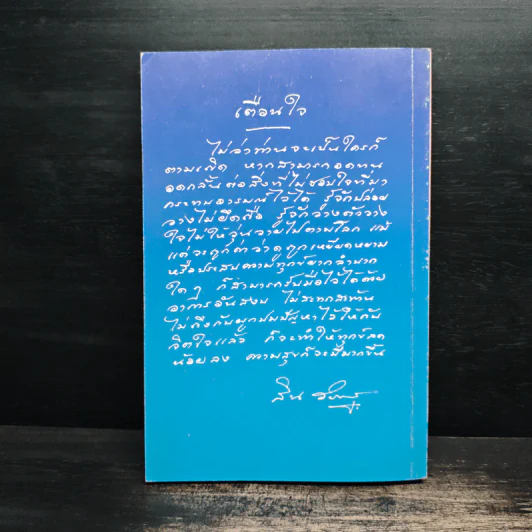 เตือนใจ
ไม่ว่าท่านจะเป็นใครก็
ตามเถิด หากสามารถอดทน
อดกลั้นต่อสิ่งที่ไม่ชอบใจที่มา
กระทบอารมณ์ไว้ได้ รู้จักปล่อย
วางไม่ยึดถือ รู้จักวางตัววาง
ใจไม่ให้วุ่นวายไปตามโลก แม้
แต่จะถูกด่าว่าดูถูกเหยียดหยาม
หรือประสบความทุกข์ยากลำบาก
ใดๆ ก็สามารถรับมือไว้ได้ด้วย
อาการอันสงบ ไม่สะทกสะท้าน
ไม่ถึงกับผูกปมปัญหาไว้ให้กับ
จิตใจแล้ว ก็จะทำให้ทุกข์ลด
น้อยลง ความสุขก็จะมีมากขึ้น